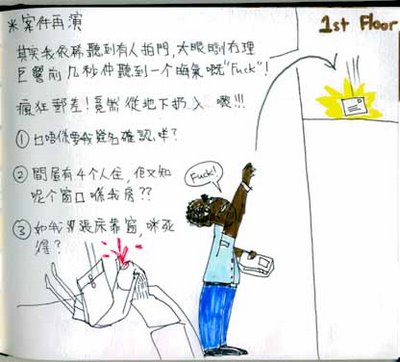 ※案件再演
1st Floor
其實我依稀聽到有人拍門, 太眼瞓冇理
巨響前几秒仲聽到一个晦氣嘅"Fuck"!
瘋狂郵差! 竟然從地下扔入嚟!!!
① 唔係要我簽名確認咩?
② 間屋有4个人住, 佢又知
呢个窗口係我房??
Fuck!
③ 如我張床靠窗, 咪死
得?